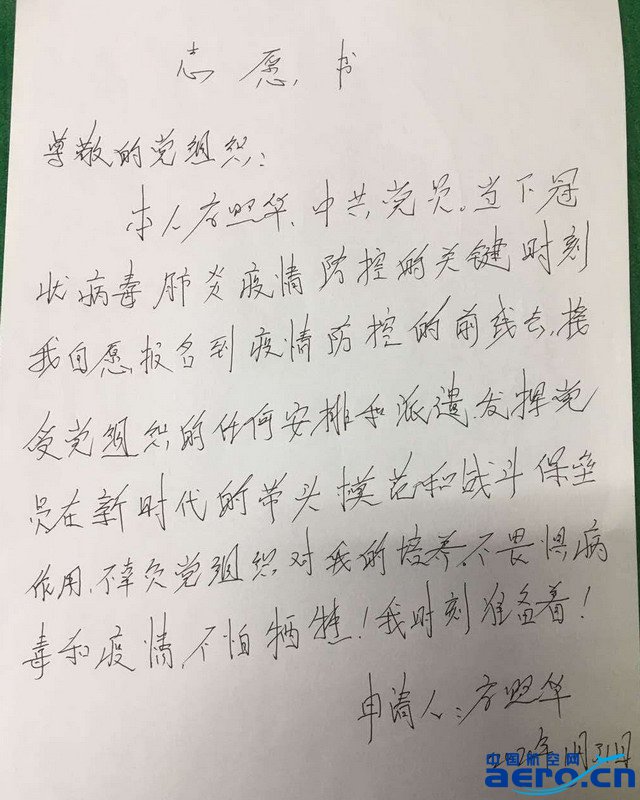 志愿书
尊敬的党组织：
本人方照华，中共党员。当下冠
状病毒肺炎疫情防控的关键时刻
我自愿报名到疫情防控的前线去，接
受党组织的任何安排和派遣，发挥党
员在新时代的带头模范和战斗保垒
作用，不辜负党组织对我的培养，不畏惧病
毒和疫情，不怕牺牲！我时刻准备着！
申请人：方照华
年1月31日
中国航空网
aero.cn